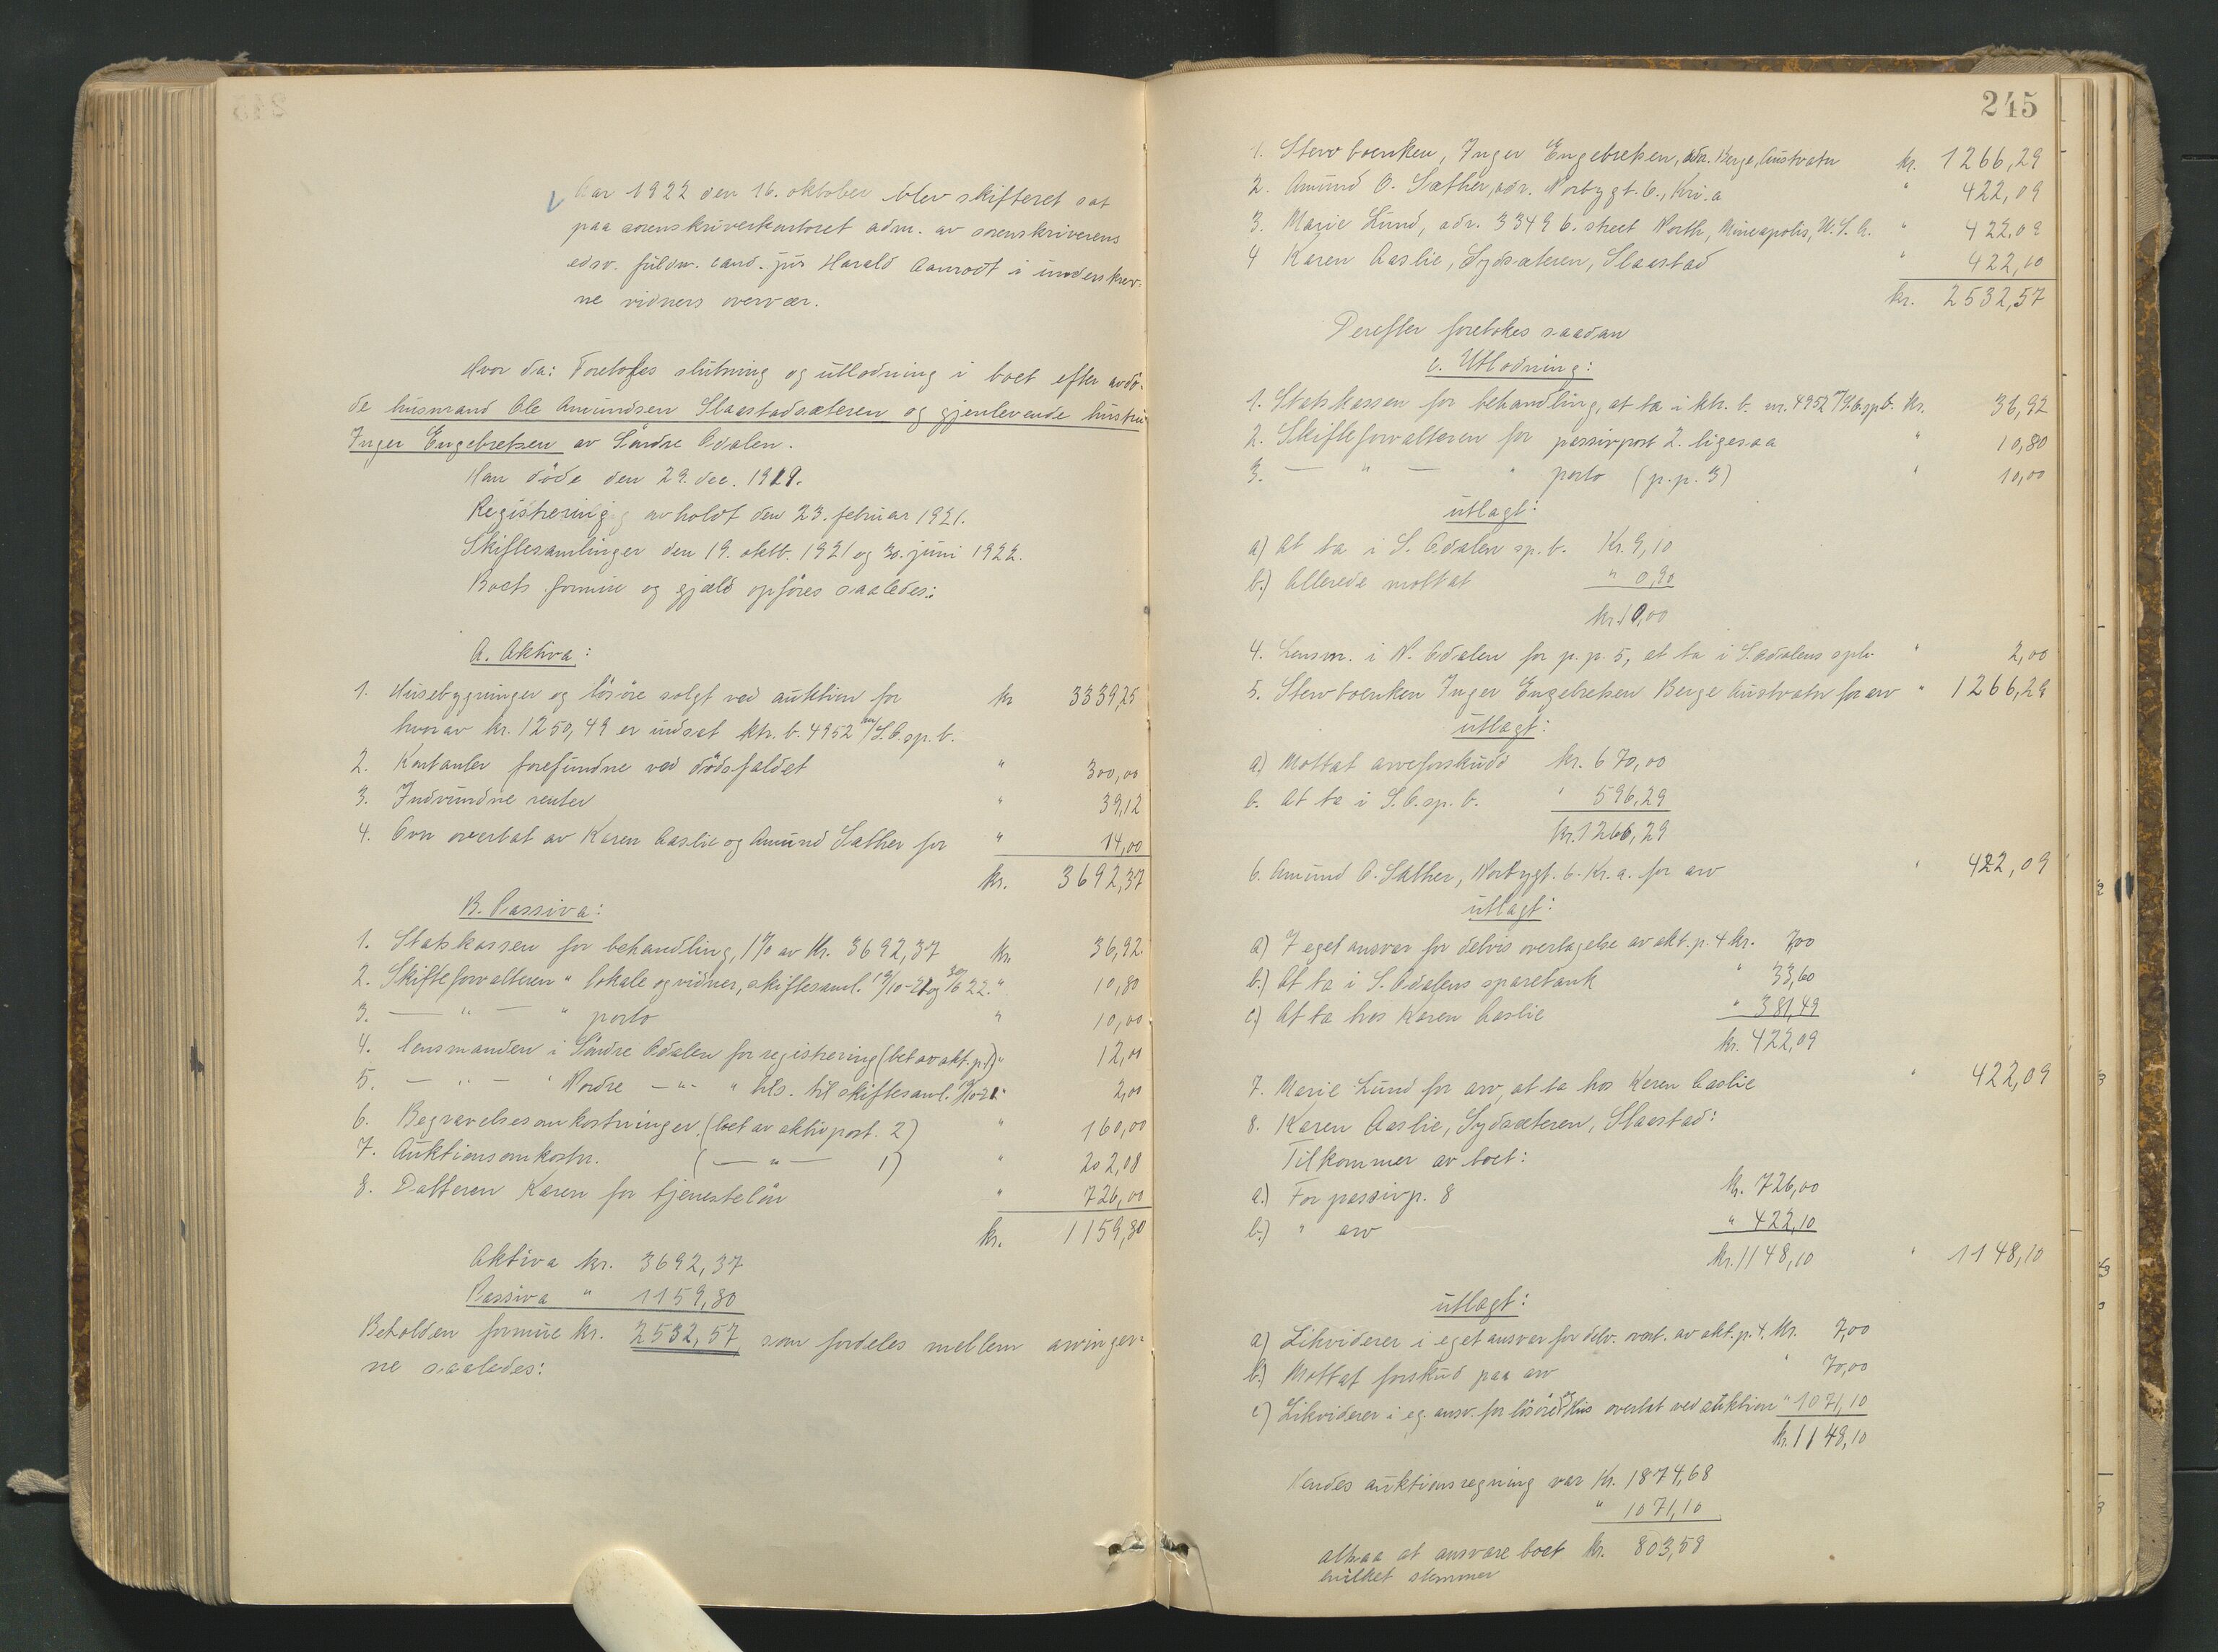 Aar 1922 den 16. oktober blev skifteret sat
paa sorenskriverkontoret adm. av sorenskriverens
edsv. fuldm. cand. jur Harald Aanrødt i underskrev-
ne vidners overvær.
Hvor da: Foretokes slutning og utlodning i boet efter avdø-
de husmand Ole Amundsen Slaastadsæteren og gjenlevende hustru
Inger Engebretsen av Søndre Odalen.
Han døde den 29. dec. 1919.
Registrering avholdt den 23. februar 1921.
Skiftesamlinger den 19. oktb. 1921 og 30. juni 1922.
Boets formue og gjæld opføres saaledes:
A. Aktiva:
1. Husebygninger og løsøre solgt ved auktion for kr 3339,25
hvorav kr. 1250,49 er indsat ktr. b. 4952 S.O.sp.b.
2. Kontanter forefundne ved dødsfaldet " 300,00
3. Indvundne renter " 39,12
4. Ovn overtat av Karen Aaslie og Amund Sæther for " 14,00
kr. 3692,37
B. Passiva:
1. Statskassen for behandling, 1% av kr. 3692,37 kr. 36,92
2. Skifteforvalteren " lokale og vidner, skiftesaml. 19/10-21 og 30/6 22. " 10,80
3. — " — " porto " 10,00
4. lensmanden i Søndre Odalen for registrering (bet av akt. p. 1) " 12,00
5. — " — " Nordre — " — " tils. til skiftesaml. 19/10-21 " 2,00
6. Begravelsesomkostninger (bet av aktivpost. 2) " 160,00
7. Auktionsomkostn. ( — " — 1) " 202,08
8. Datteren Karen for tjenesteløn " 726,00
kr. 1159,80
Aktiva kr. 3692,37
Passiva " 1159,80
Beholden formue kr. 2532,57 som fordeles mellem arvinger-
ne saaledes:
245
1. Stervboenken, Inger Engebretsen, adr. Berge, Austvatn kr. 1266,29
2. Amund O. Sæther, adr. Norbygt. 6., Kr.a " 422,09
3. Marie Lund, adr. 3349 6. street North, Mineapolis, U.S.A. " 422,09
4 Karen Aaslie, Sydsæteren, Slaastad " 422,10
kr. 2532,57
Derefter foretokes saadan
C. Utlodning:
1. Statskassen for behandling, at ta i ktr. b. nr. 4952 S.O.sp.b. kr. 36,92
2. Skifteforvalteren for passivpost 2. ligesaa " 10,80
3. — " — " porto (p.p. 3) " 10,00
utlagt:
a) At ta i S. Odalen sp. b. Kr. 9,10
b.) Allerede mottat " 0,90
kr. 10,00
4. Lensm. i N. Odalen for p.p. 5, at ta i S. Odalens spb. " 2,00
5. Stervboenken Inger Engebretsen Berge Austvatn for arv " 1266,29
utlagt:
a) Mottat arveforskudd kr. 670,00
b. At ta i S.O.sp.b. " 596,29
kr. 1266,29
6. Amund O. Sæther, Norbygt. 6 Kr.a. for arv " 422,09
utlagt:
a) I eget ansvar for delvis overtagelse av akt. p. 4 kr. 7,00
b.) At ta i S. Odalens sparebank " 33,60
c.) At ta hos Karen Aaslie " 381,49
kr. 422,09
7. Marie Lund for arv, at ta hos Karen Aaslie " 422,09
8. Karen Aaslie, Sydsæteren, Slaastad:
Tilkommer av boet:
a.) For passivp. 8 kr. 726,00
b.) " arv " 422,10
kr. 1148,10 " 1148,10
utlagt:
a) Likviderer i eget ansvar for delv. overt. av akt. p. 4. kr. 7,00
b.) Mottat forskud paa arv " 70,00
c) Likviderer i eg. ansv. for løsøre og hus overtat ved auktion " 1071,10
kr. 1148,10
Hendes auktionsregning var Kr. 1874,68
" 1071,10
altsaa at ansvare boet kr. 803,58
hvilket stemmer